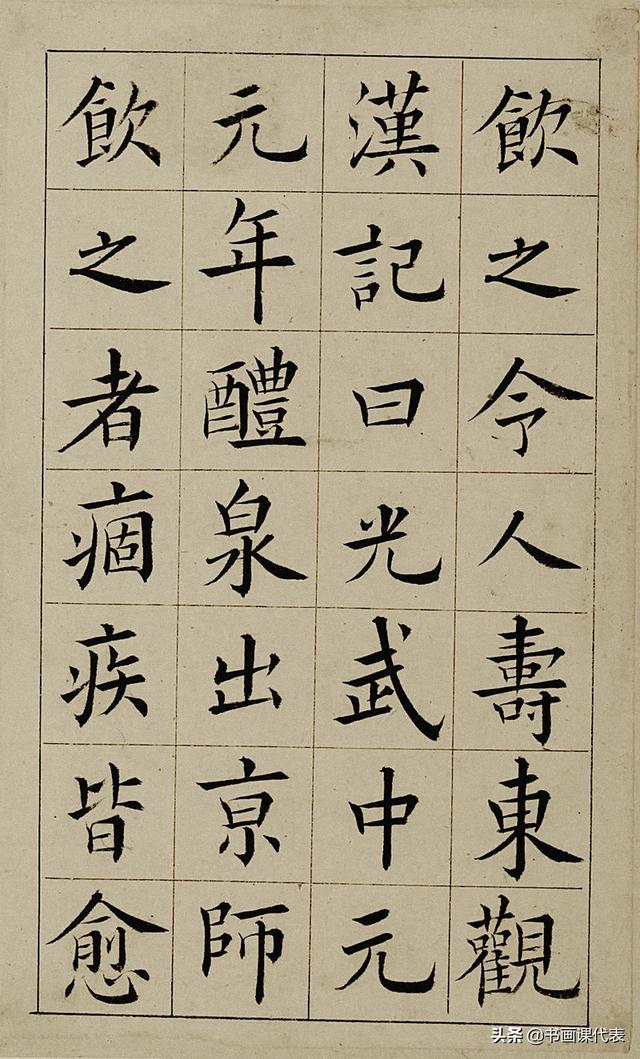 飲之令人壽東觀
漢記曰光武中元
元年醴泉出京師
飲之者痼疾皆愈
头条 @书画课代表